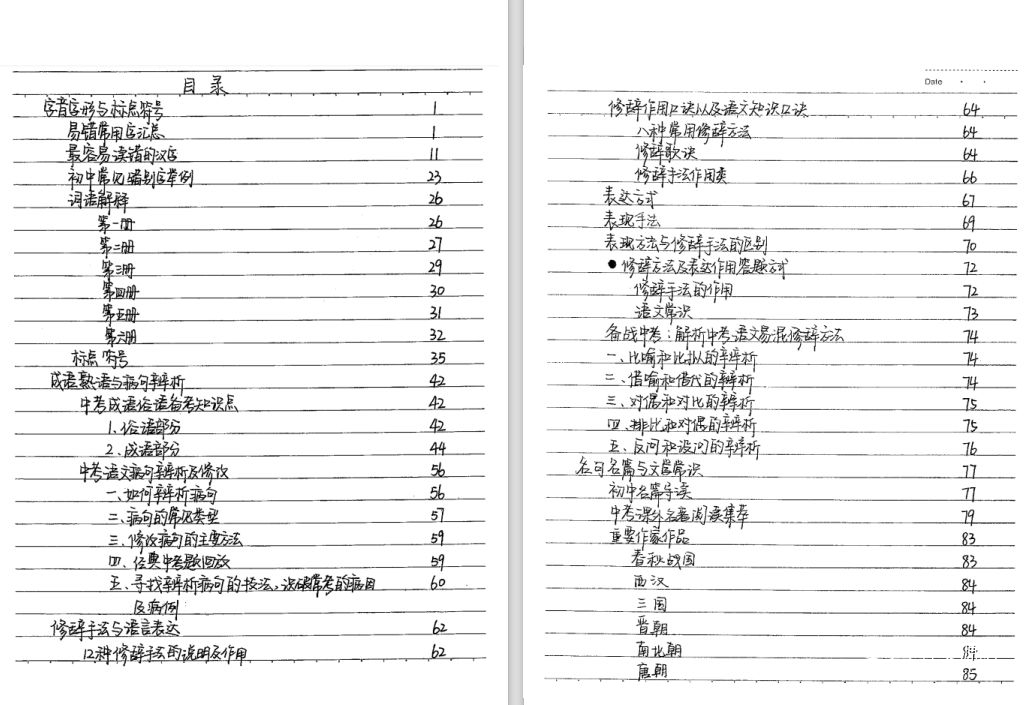 目录
字音字形与标点符号 1
易错常用字汇总 1
最容易读错的汉字 11
初中常见错别字举例 23
词语解释 26
第一册 26
第二册 27
第三册 29
第四册 30
第五册 31
第六册 32
标点符号 35
成语熟语与病句辨析 42
中考成语俗语备考知识点 42
1.俗语部分 42
2.成语部分 44
中考语文病句辨析及修改 56
一.如何辨析病句 56
二.病句的常见类型 57
三.修改病句的主要方法 59
四.经典中考题回放 59
五.寻找辨析病句的技法,识破常考的病因 60
及病例
修辞手法与语言表达 62
12种修辞手法的说明及作用 62
Date
修辞作用口诀以及语文知识口诀 64
八种常用修辞方法 64
修辞歌诀 64
修辞手法作用类 66
表达方式 67
表现手法 69
表现方法与修辞手法的区别 70
●修辞方法及表达作用答题方式 72
修辞手法的作用 72
语文常识 73
备战中考:解析中考语文易混修辞方法 74
一、比喻和比拟的辨析 74
二、借喻和借代的辨析 74
三、对偶和对比的辨析 75
四、排比和对偶的辨析 75
五、反问和设问的辨析 76
名句名篇与文学常识 77
初中名篇导读 77
中考课外名著阅读集萃 79
重要作家作品 83
春秋战国 83
西汉 84
三国 84
晋朝 84
南北朝 84
唐朝 85